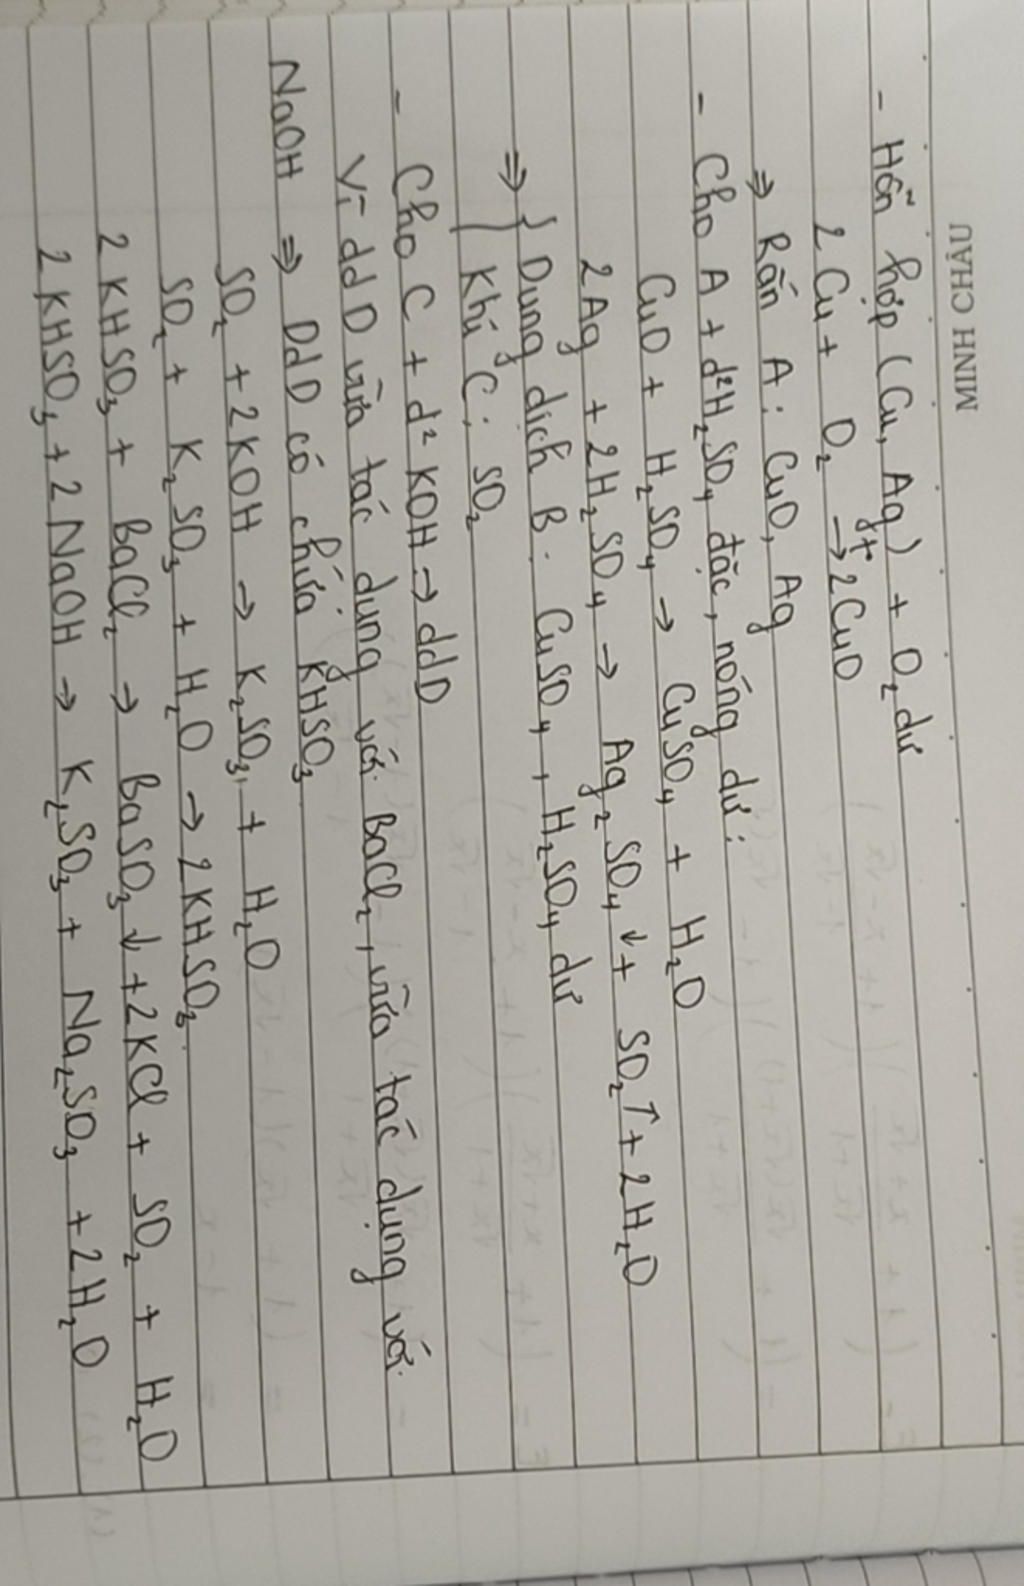 MINH CHÂU
- Hỗn hợp (Cu, Ag) + O₂ dư
2Cu + O₂ →ᵗ° 2CuO
⇒ Rắn A: CuO, Ag
- Cho A + d² H₂SO₄ đặc, nóng dư:
CuO + H₂SO₄ → CuSO₄ + H₂O
2Ag + 2H₂SO₄ → Ag₂SO₄↓ + SO₂↑ + 2H₂O
⇒ { Dung dịch B: CuSO₄, H₂SO₄ dư
Khí C: SO₂
- Cho C + d² KOH → ddD
Vì ddD vừa tác dụng với BaCl₂, vừa tác dụng với
NaOH ⇒ DdD có chứa KHSO₃
SO₂ + 2KOH → K₂SO₃ + H₂O
SO₂ + K₂SO₃ + H₂O → 2KHSO₃
2KHSO₃ + BaCl₂ → BaSO₃↓ + 2KCl + SO₂ + H₂O
2KHSO₃ + 2NaOH → K₂SO₃ + Na₂SO₃ + 2H₂O